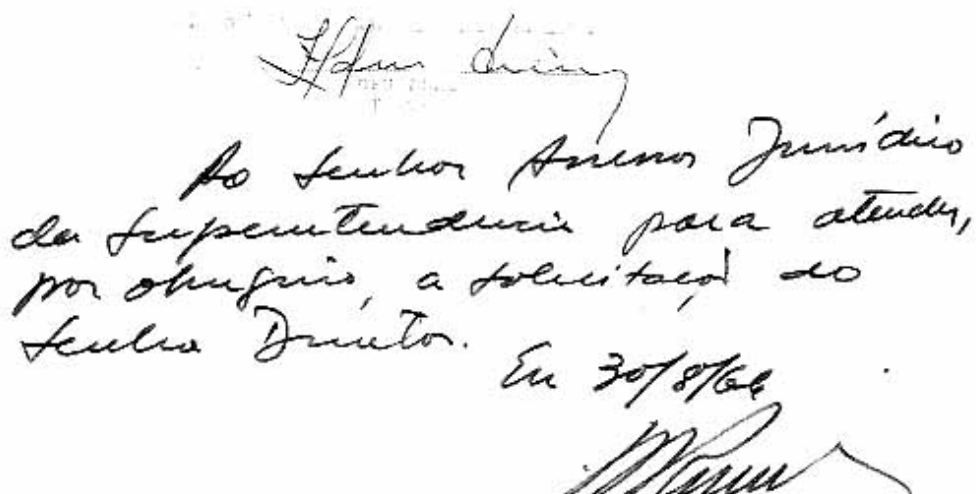 Ao Senhor Assessor Jurídico
da Superintendencia para atender,
por obséquio, a solicitação do
Senhor Diretor.
Em 30/8/66